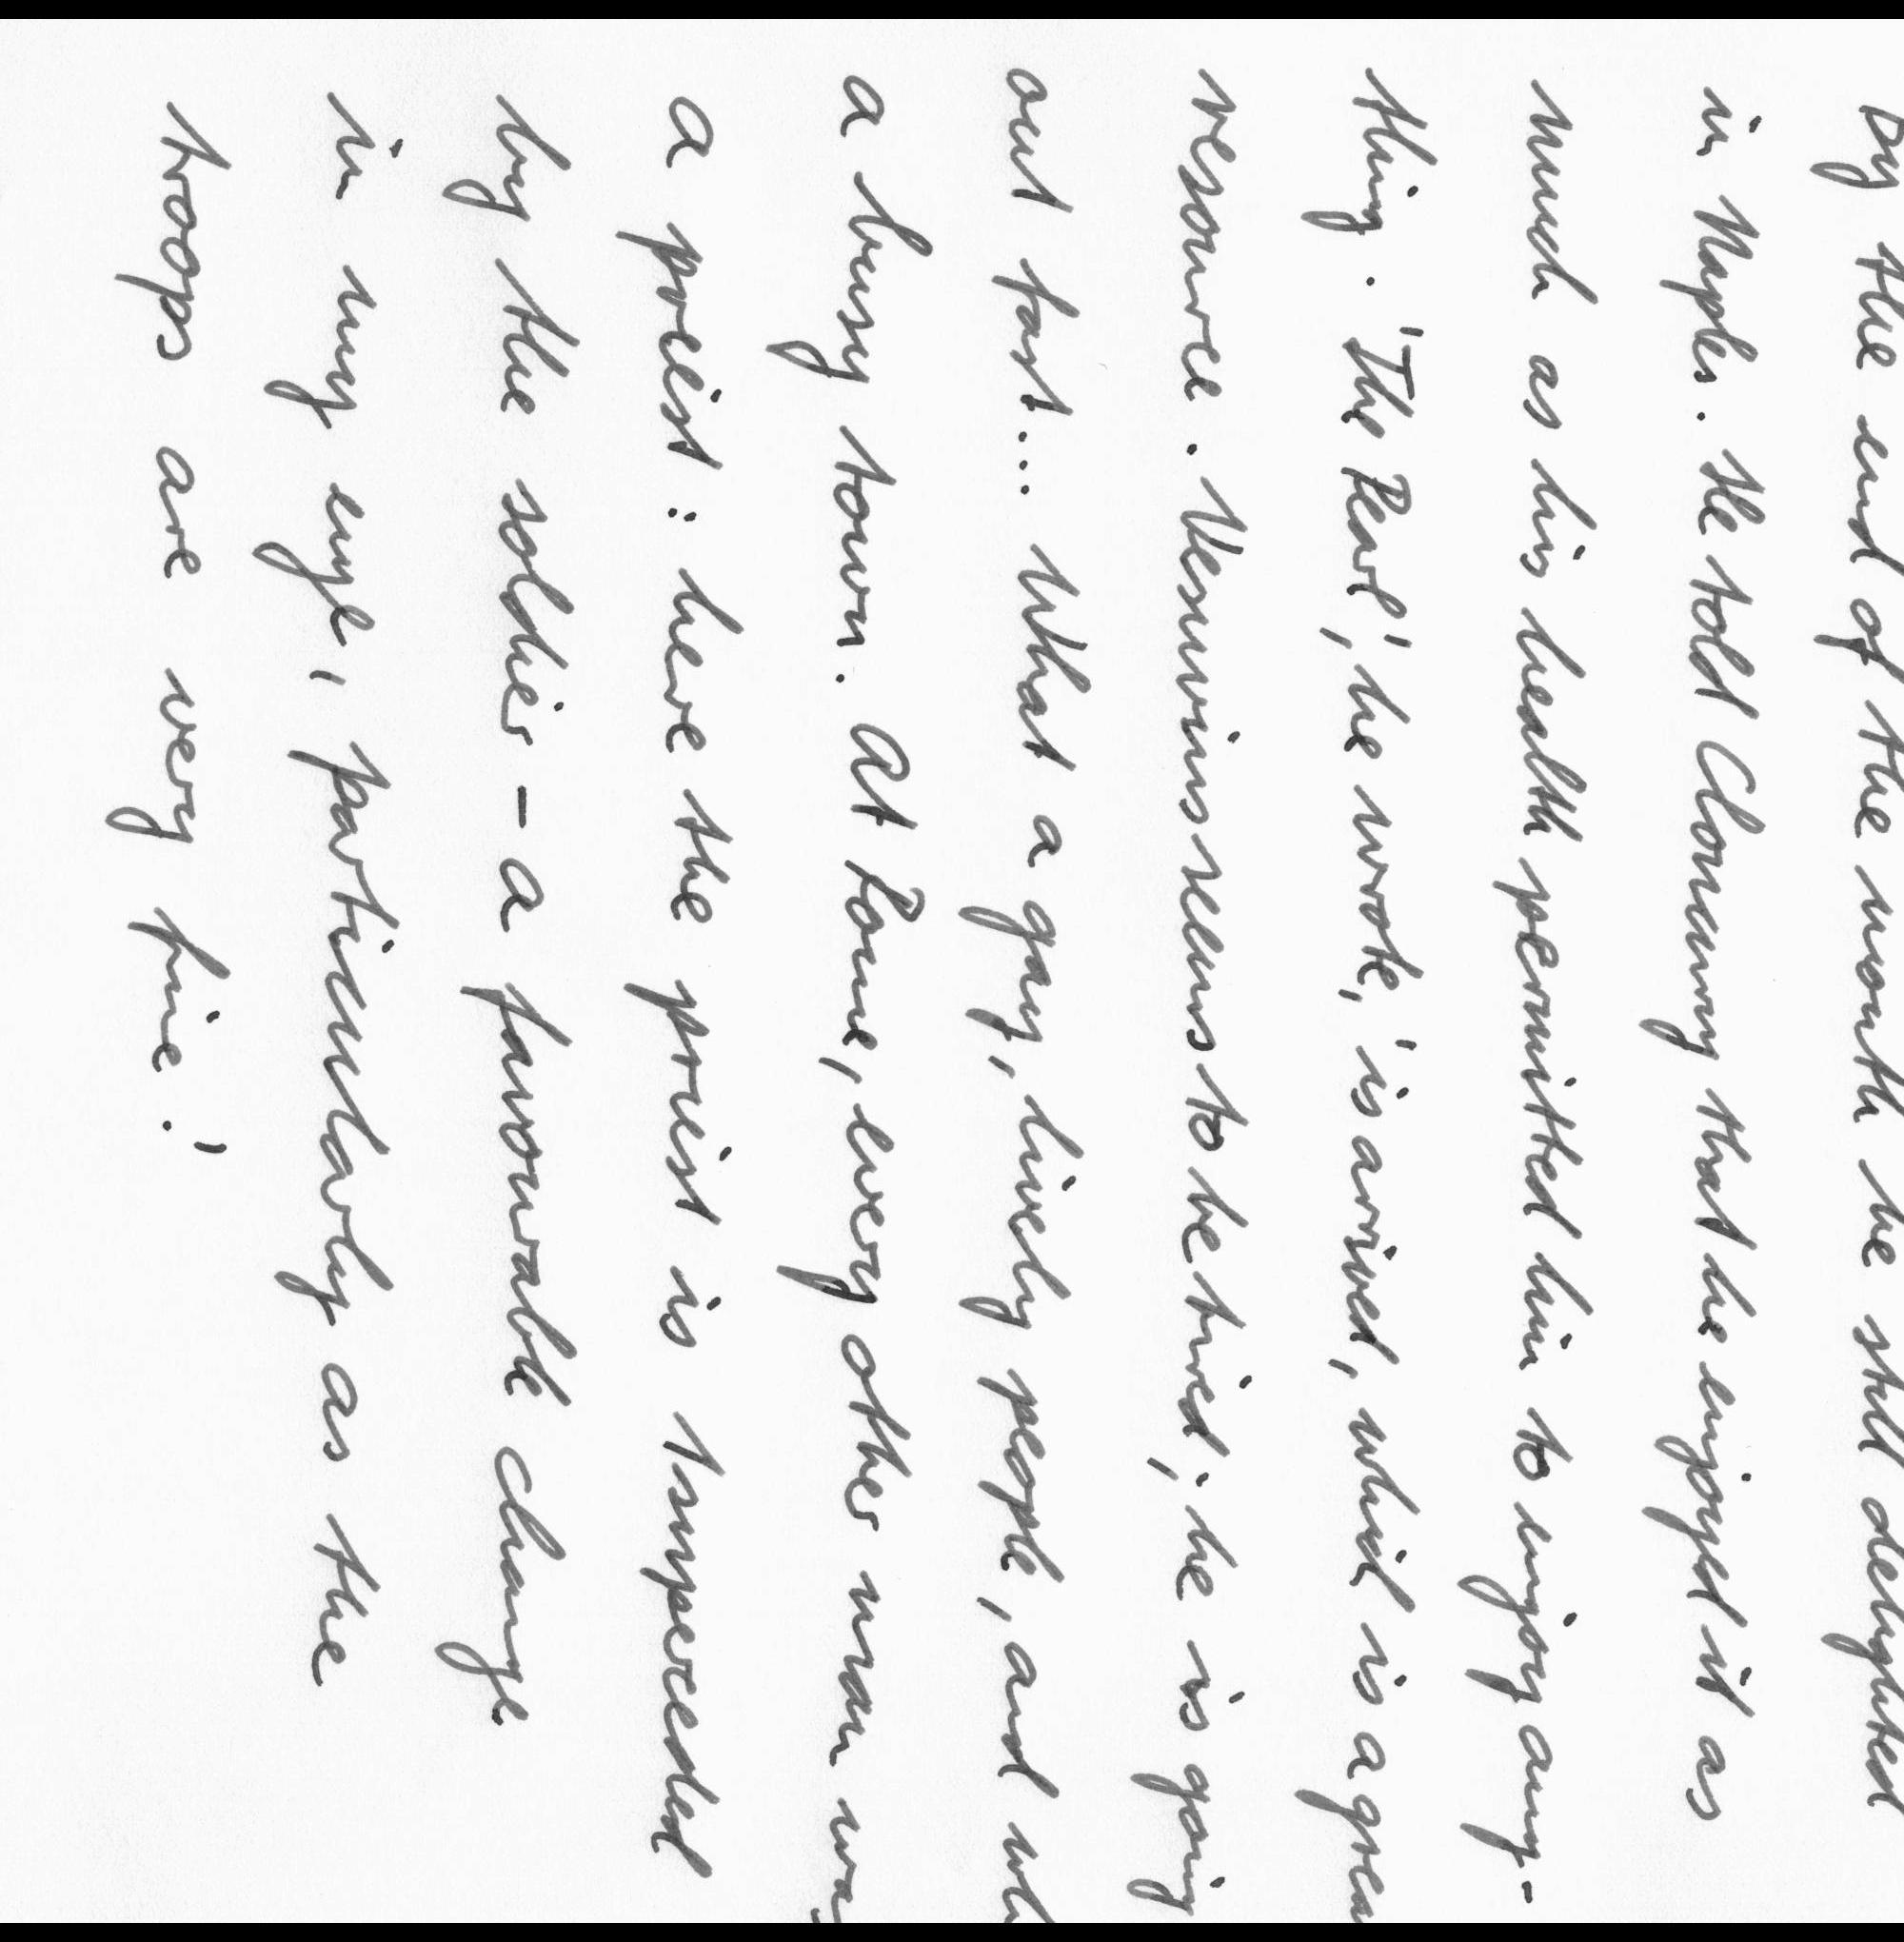 By the end of the month he still delighted
in Naples. He told Cloncurry that he enjoyed it as
much as his health permitted him to enjoy any-
thing. 'The Pearl,' he wrote, 'is arrived, which is a
resource. Vesuvius seems to be tired; he is going
out fast... What a gay, lively people, and
a busy town. At Rome, every other man
a preist: here the priest is superceded
by the soldier - a favourable change
in my eye, particularly as the
troops are very fine.'